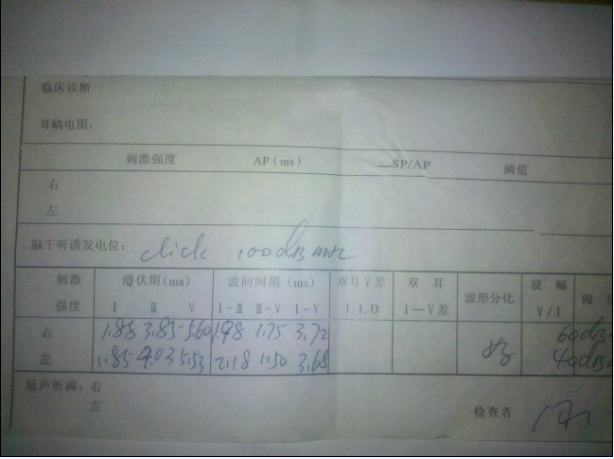 临床诊断
耳蜗电图：
刺激强度 AP(ms) —SP/AP 阈值
右
左
脑干听诱发电位： click 100dB
刺激 潜伏期(ms) 波间间期(ms) 双耳V差 双耳 波形分化 波幅 阈
强度 I Ⅲ V I-Ⅲ Ⅲ-V I-V ILD I—V差 V/I
右 1.88 3.85 5.60 1.98 1.75 3.72 60dB
左 1.85 4.03 5.53 2.18 1.50 3.68 好 40dB
短声听阈：右
左
检查者